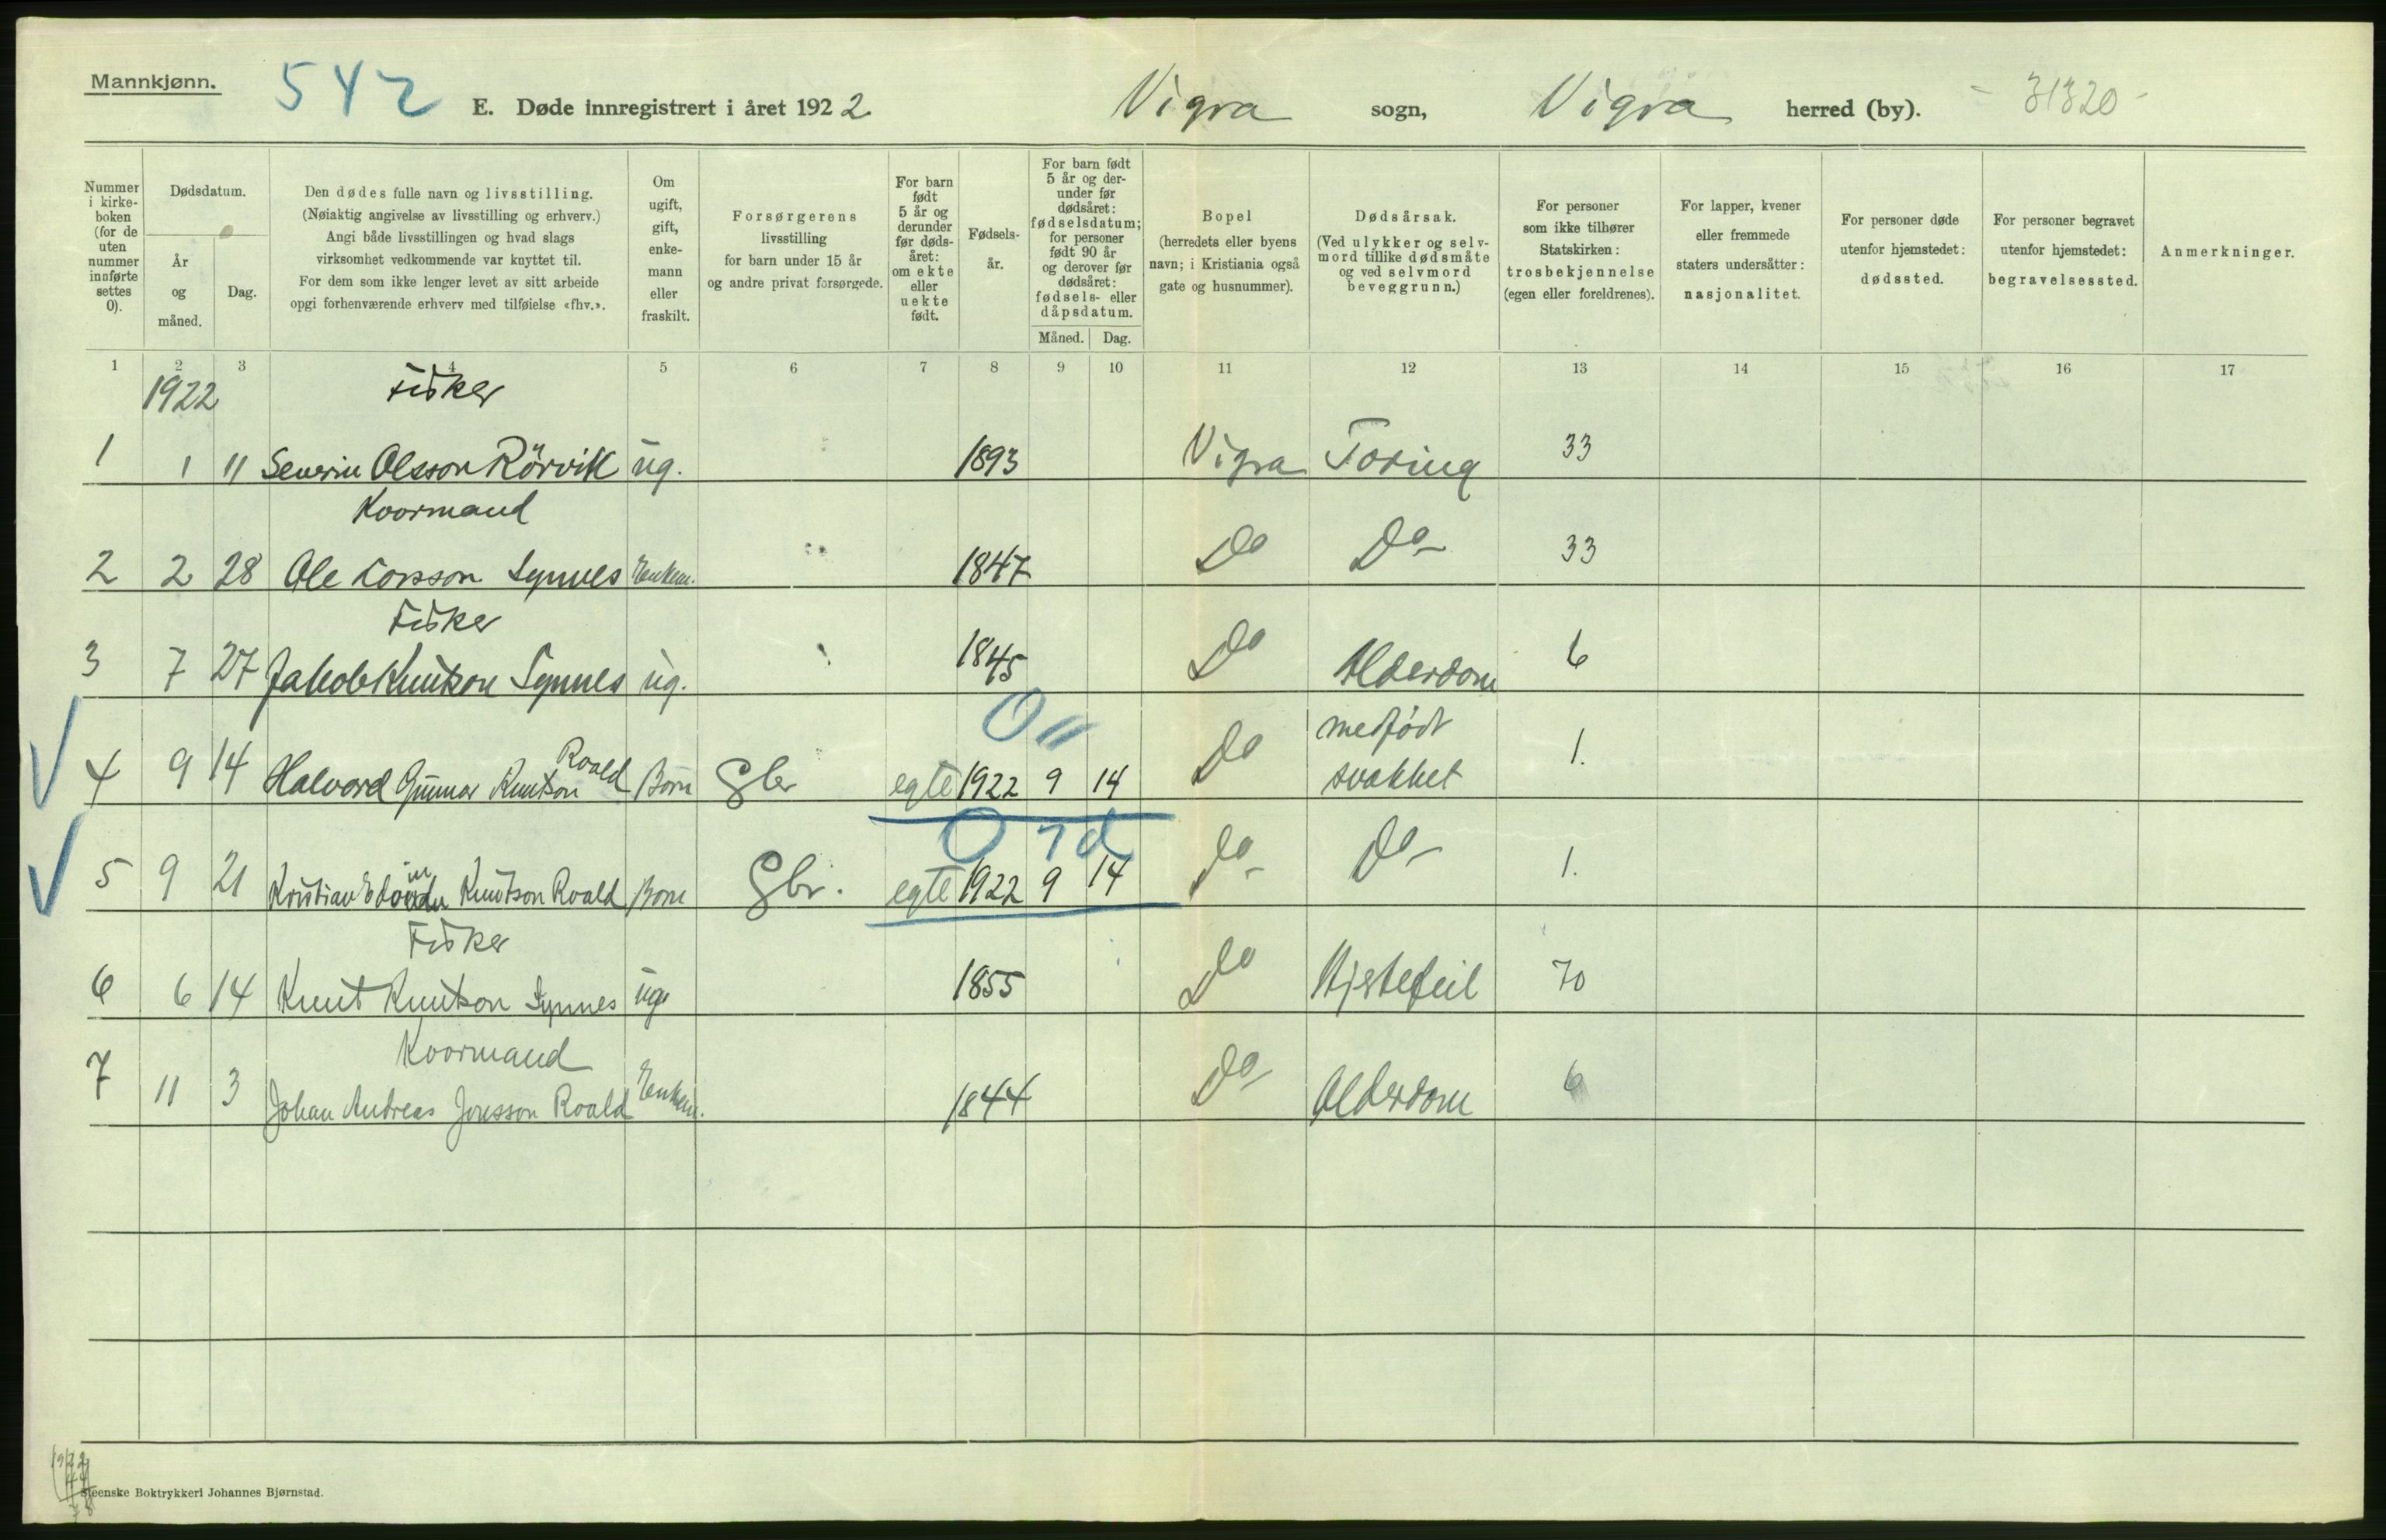 Mannkjønn.
542
E. Døde innregistrert i året 1922.
Vigra sogn, Vigra herred (by).
- 31320 -
Nummer i kirke-boken (for de uten nummer innførte settes 0).
Dødsdatum.
År og måned.
Dag.
Den dødes fulle navn og livsstilling.
(Nøiaktig angivelse av livsstilling og erhverv.)
Angi både livsstillingen og hvad slags
virksomhet vedkommende var knyttet til.
For dem som ikke lenger levet av sitt arbeide
opgi forhenværende erhverv med tilføielse «fhv.».
Om ugift, gift, enke-mann eller fraskilt.
Forsørgerens
livsstilling
for barn under 15 år
og andre privat forsørgede.
For barn født 5 år og derunder før døds-året: om ekte eller uekte født.
Fødsels-år.
For barn født 5 år og der-under før dødsåret: fødselsdatum; for personer født 90 år og derover før dødsåret: fødsels- eller dåpsdatum.
Måned. Dag.
Bopel
(herredets eller byens
navn; i Kristiania også
gate og husnummer).
Dødsårsak.
(Ved ulykker og selv-
mord tillike dødsmåte
og ved selvmord
beveggrunn.)
For personer
som ikke tilhører
Statskirken:
trosbekjennelse
(egen eller foreldrenes).
For lapper, kvener
eller fremmede
staters undersåtter:
nasjonalitet.
For personer døde
utenfor hjemstedet:
dødssted.
For personer begravet
utenfor hjemstedet:
begravelsessted.
Anmerkninger.
1 2 3 4 5 6 7 8 9 10 11 12 13 14 15 16 17
1922 Fisker
1 1 11 Severin Olsson Rörvik ug. 1893 Vigra Tæring 33
Kaarmand
2 2 28 Ole Larsson Synnes Enkem. 1847 Do Do- 33
Fisker
3 7 27 Jakob Knutson Synnes ug. 1845 Do Alderdom 6
0 11
4 9 14 Halvard Gunnar Knutson Roald Barn Gbr egte 1922 9 14 Do medfödt svakhet 1.
0 7 d
5 9 21 Kristian Edvin Knutson Roald Barn Gbr. egte 1922 9 14 Do- Do- 1.
Fisker
6 6 14 Knut Knutson Synnes ug. 1855 Do Hjertefeil 70
Kaarmand
7 11 3 Johan Andreas Jonsson Roald Enkem. 1844 Do- Alderdom 6
Steenske Boktrykkeri Johannes Bjørnstad.